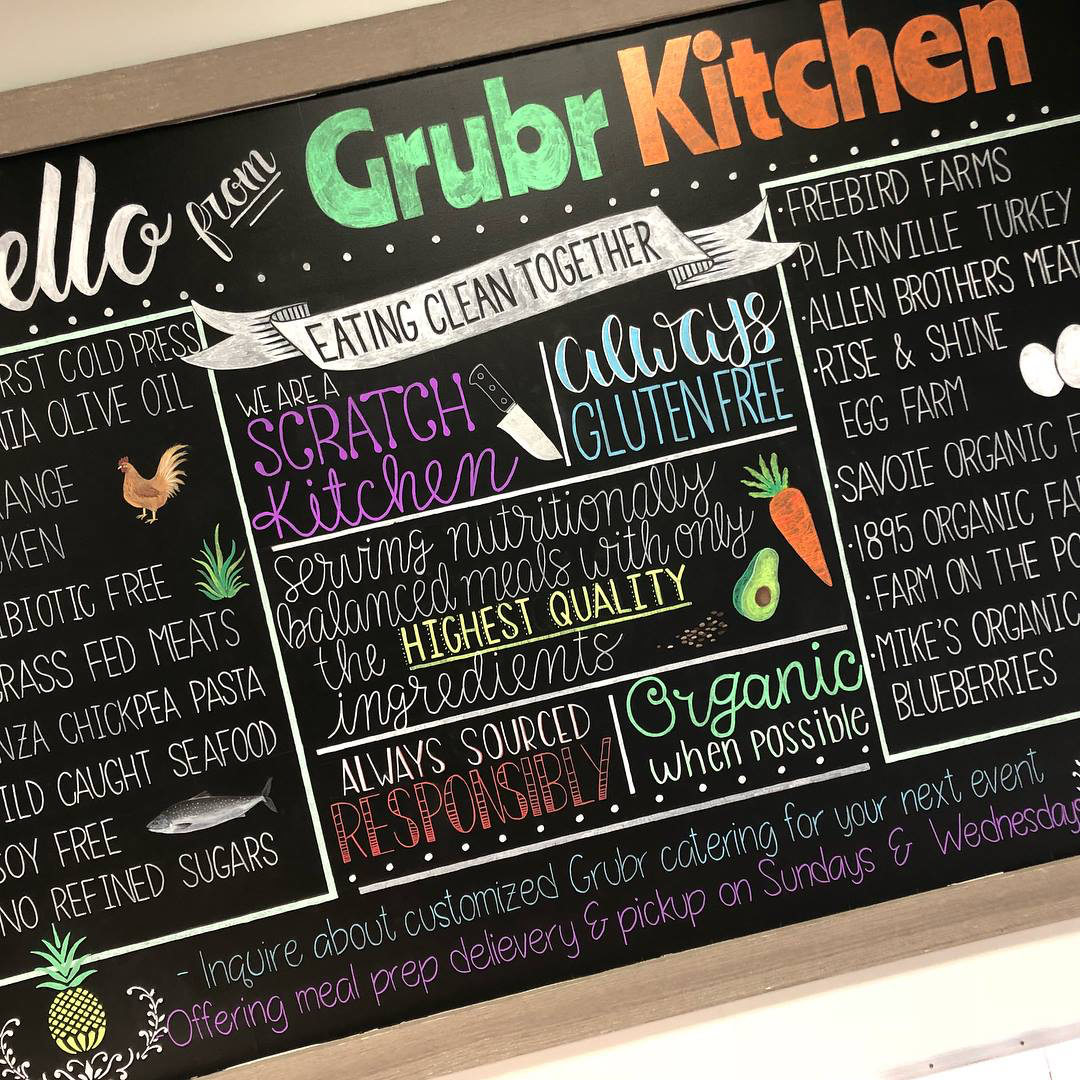 ello from Grubr Kitchen
EATING CLEAN TOGETHER
RST COLD PRESS
NIA OLIVE OIL
RANGE
KEN
BIOTIC FREE
GRASS FED MEATS
NZA CHICKPEA PASTA
ILD CAUGHT SEAFOOD
SOY FREE
NO REFINED SUGARS
WE ARE A
SCRATCH
Kitchen
always
GLUTEN FREE
serving nutritionally
balanced meals with only
the HIGHEST QUALITY
ingredients
ALWAYS SOURCED
RESPONSIBLY
Organic
when possible
·FREEBIRD FARMS
·PLAINVILLE TURKEY
·ALLEN BROTHERS MEAT
·RISE & SHINE
EGG FARM
·SAVOIE ORGANIC F
·1895 ORGANIC FA
·FARM ON THE PO
·MIKE'S ORGANIC
BLUEBERRIES
- Inquire about customized Grubr catering for your next event
Offering meal prep delievery & pickup on Sundays & Wednesdays